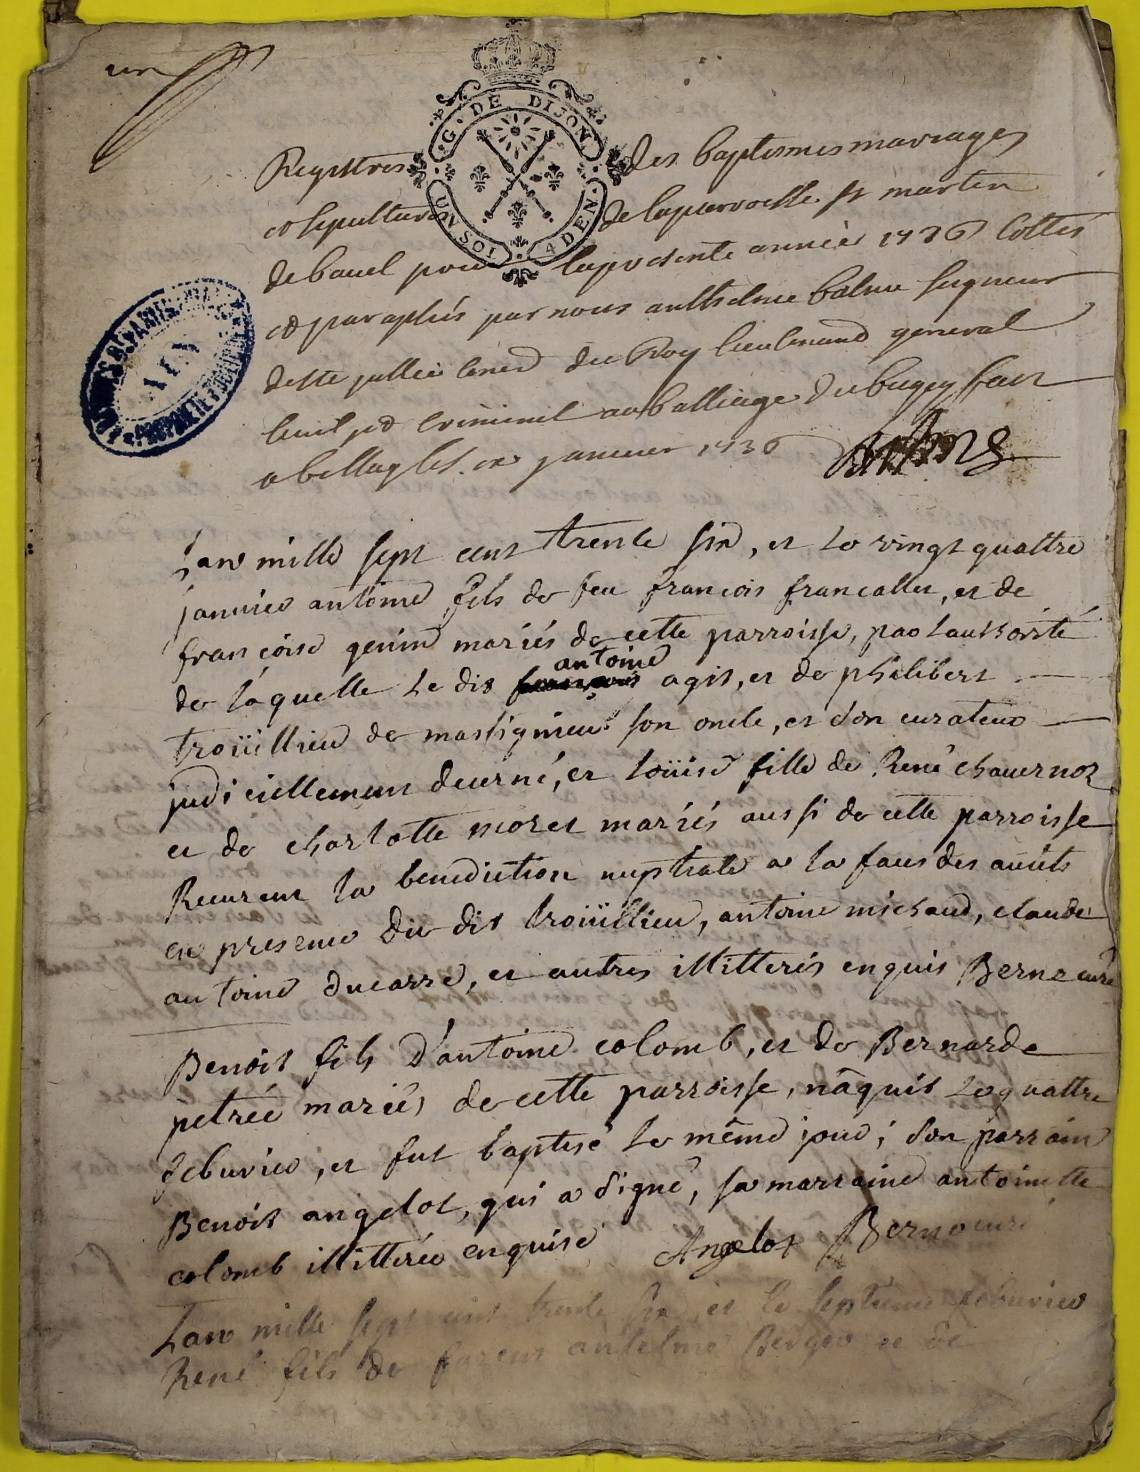 un
G. DE DIJON
UN SOL 4 DEN.
Registres des baptesmes mariages
et sepultures de la parroisse st martin
de bavel pour la presente année 1736 Cottés
et paraphés par nous anthelme balme seigneur
de ste jullie Coner du Roy lieutenand general
civil et Criminel au balliage du bugey fait
a belley le janvier 1736
ARCHIVES DEPARTEMENTALES
AIN
PROPRIETE PUBLIQUE
L'an mille sept cent trente six, et le vingt quattre
janvier antoine fils de feu françois francallet, et de
françoise genin mariés de cette parroisse, par l'authorité
de laquelle le dit françois antoine agit, et de philibert
troüillieu de massignieu son oncle, et son curateur
judiciellement decerné, et loüise fille de René chavernoz
et de charlotte moret mariés aussi de cette parroisse
Receurent la benediction nuptiale a la face des autels
en presence du dit troüillieu, antoine michaud, claude
antoine ducarre, et autres illitterés enquis Berne curé
Benoit fils d'antoine colomb, et de Bernarde
petrée mariés de cette parroisse, nâquit le quattre
febuvier, et fut baptisé le même jour; son parrain
Benoit angelot, qui a signé, sa marraine antoinette
colomb illitterée enquise Angelot Berne curé
L'an mille sept cent trente six, et le septieme febuvier
René fils de anselme Berger et de